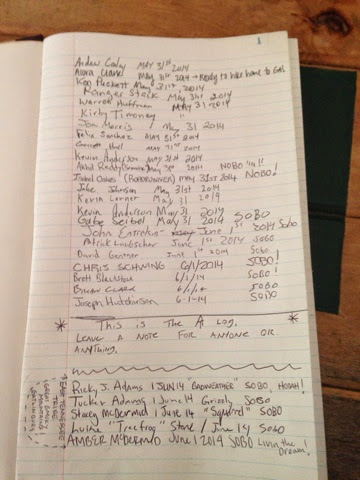 1
May 31st 2014
May 31st 2014 → Ready to hike home to GA!
Ken Puckett May 31st 2014
Ranger Steck May 31st 2014
Warren Huffman May 31 2014
Kirby Timoney "
Jon Morris May 31 2014
Felix Sanchez May 31st 2014
May 31st 2014
Kevin Anderson May 31st 2014
NOBO
Isabel Oakes (ROADRUNNER) May 31st 2014 NOBO!
Jake Johnson May 31st 2014
Kevin Lerner May 31 2014
Kevin Anderson May 31 2014
Gabe Seibel May 31 2014 SOBO
John Entrekin June 1st 2014 SOBO
Patrick June 1st 2014 SOBO
David Gentner June 1 2014 SOBO
CHRIS SCHWING 6/1/2014 SOBO!
Brett Blackston 6/1/14 SOBO!
CLARK 6/1/14 SOBO
Joseph Hutchinson 6-1-14 SOBO
* THIS IS THE AT LOG. *
LEAVE A NOTE FOR ANYONE OR
ANYTHING.
Ricky J. Adams 1 JUN 14 "BADWEATHER" SOBO, HOOAH!
Tucker Adams 1 June 14 Grizzly SOBO
Stacey McDermid 1 June 14 "Squirrel" SOBO
"Treefrog" Stone / June 14 SOBO
AMBER McDERMID June 1 2014 SOBO Livin the
Dream!
EAST TENNESSEE